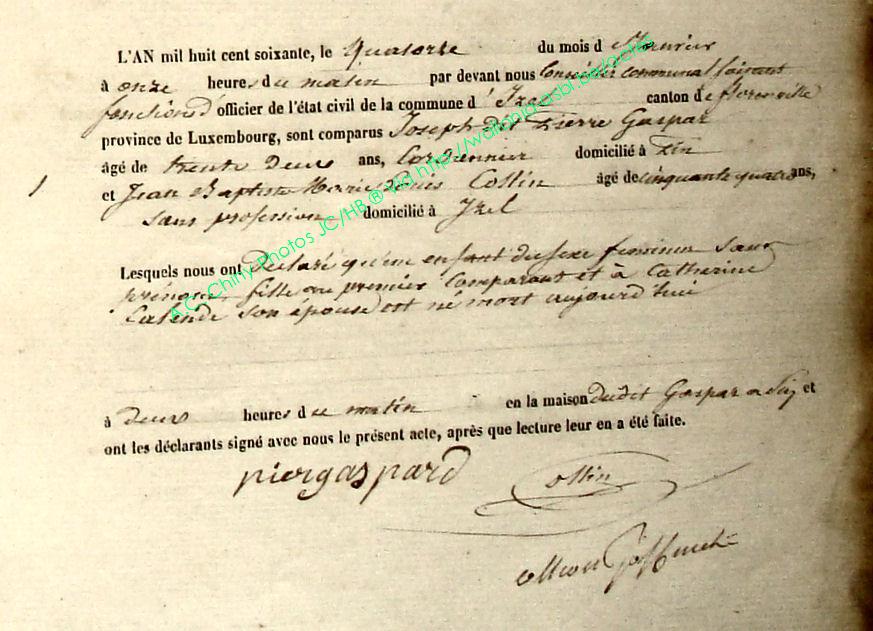 L'AN mil huit cent soixante, le Quatorze du mois d Janvier
à onze heures du matin par devant nous Conseiller communal faisant
fonctions d'officier de l'état civil de la commune d'Izel canton de florenville
province de Luxembourg, sont comparus Joseph dit Pierre Gaspar
âgé de trente deux ans, Cordonnier domicilié à
1 et Jean Baptiste Marie Louis Collin âgé de cinquante quatre ans,
sans profession domicilié à Izel
Lesquels nous ont Déclaré qu'un enfant du sexe feminin sans
prénom, fille au premier Comparant et à Catherine
son épouse est né mort aujourd'hui
à deux heures du matin en la maison dudit Gaspar a et
ont les déclarants signé avec nous le présent acte, après que lecture leur en a été faite.
piergaspard
Collin
A.C. Chiny Photos JC/HB ® via http://wallonia.asbl.be/actes